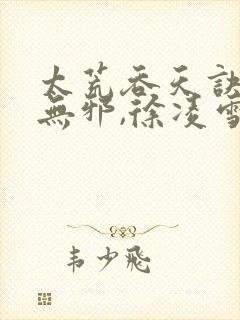 太荒吞天訣
無邪,徐凌雪
韦少飛